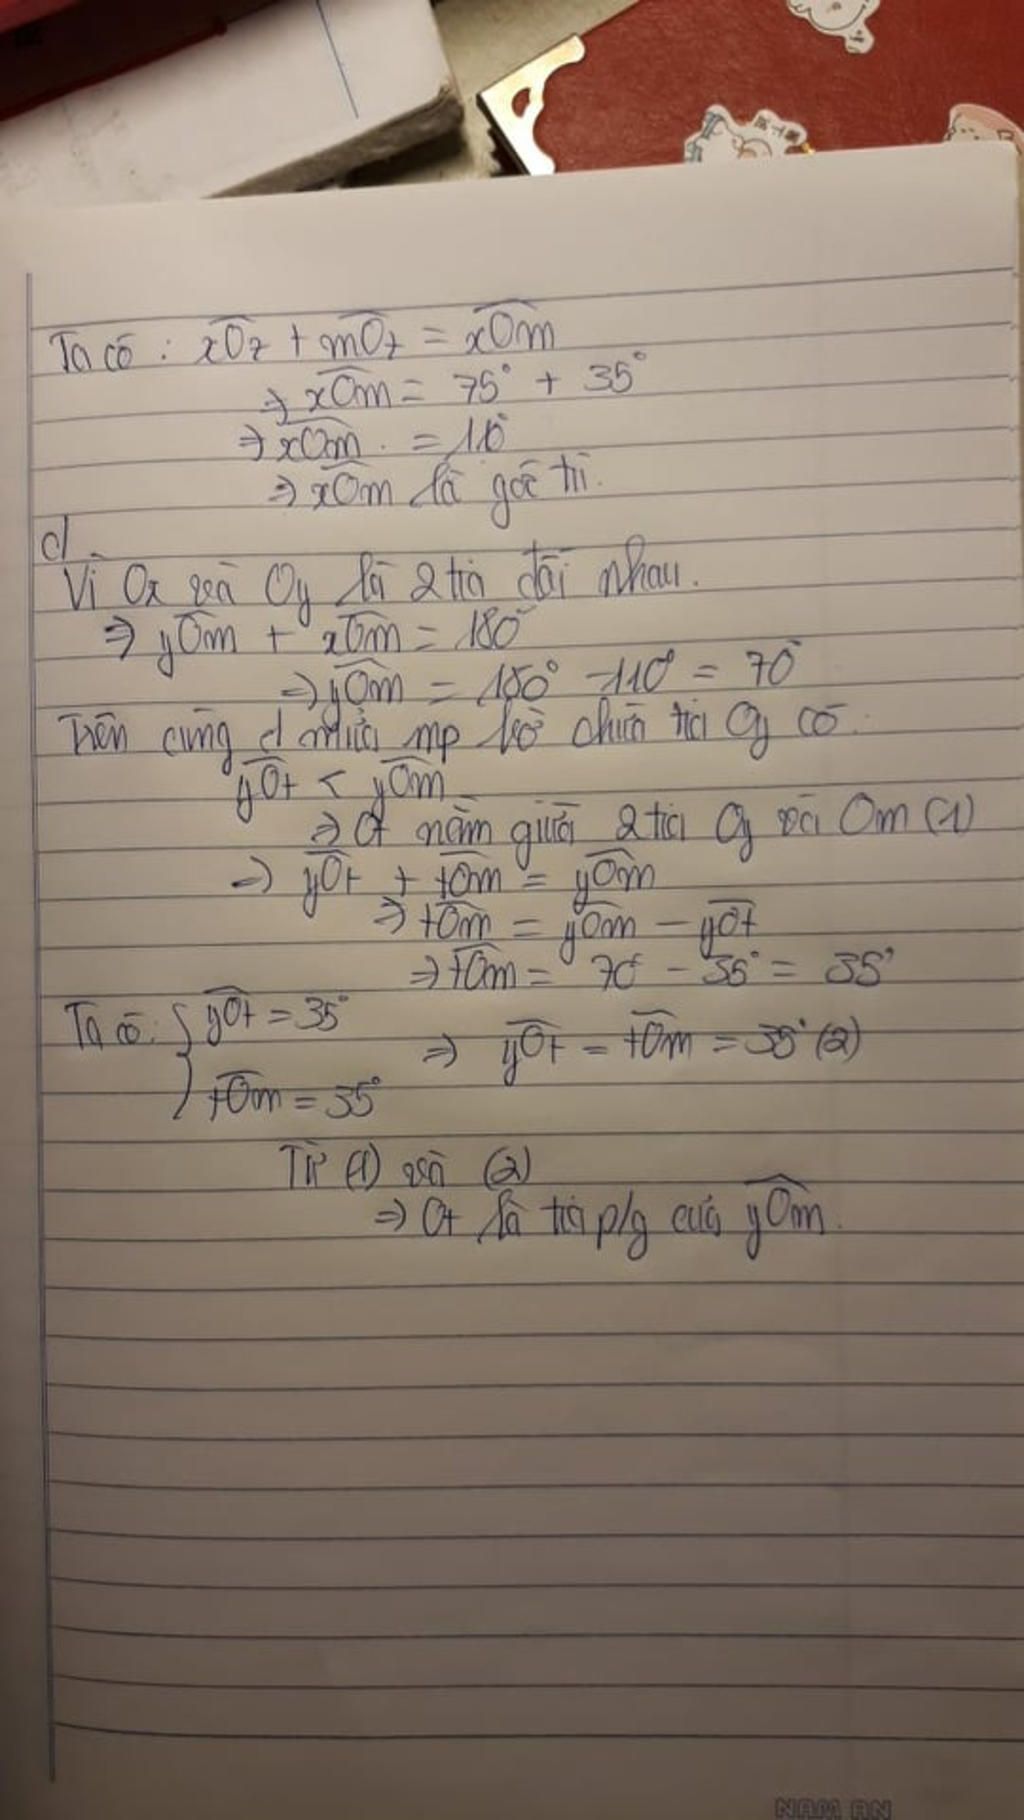 Ta có : xOz + mOz = xOm
⇒ xOm = 75° + 35°
⇒ xOm = 110°
⇒ xOm là góc tù.
d
Vì Ox và Oy là 2 tia đối nhau.
⇒ yOm + xOm = 180°
⇒ yOm = 180° - 110° = 70°
Trên cùng 1 nửa mp bờ chứa tia Oy có:
yOt < yOm
⇒ Ot nằm giữa 2 tia Oy và Om (1)
⇒ yOt + tOm = yOm
⇒ tOm = yOm - yOt
⇒ tOm = 70° - 35° = 35°
Ta có: { yOt = 35°
tOm = 35°
⇒ yOt = tOm = 35° (2)
Từ (1) và (2)
⇒ Ot là tia p/g của yOm.
NAM AN